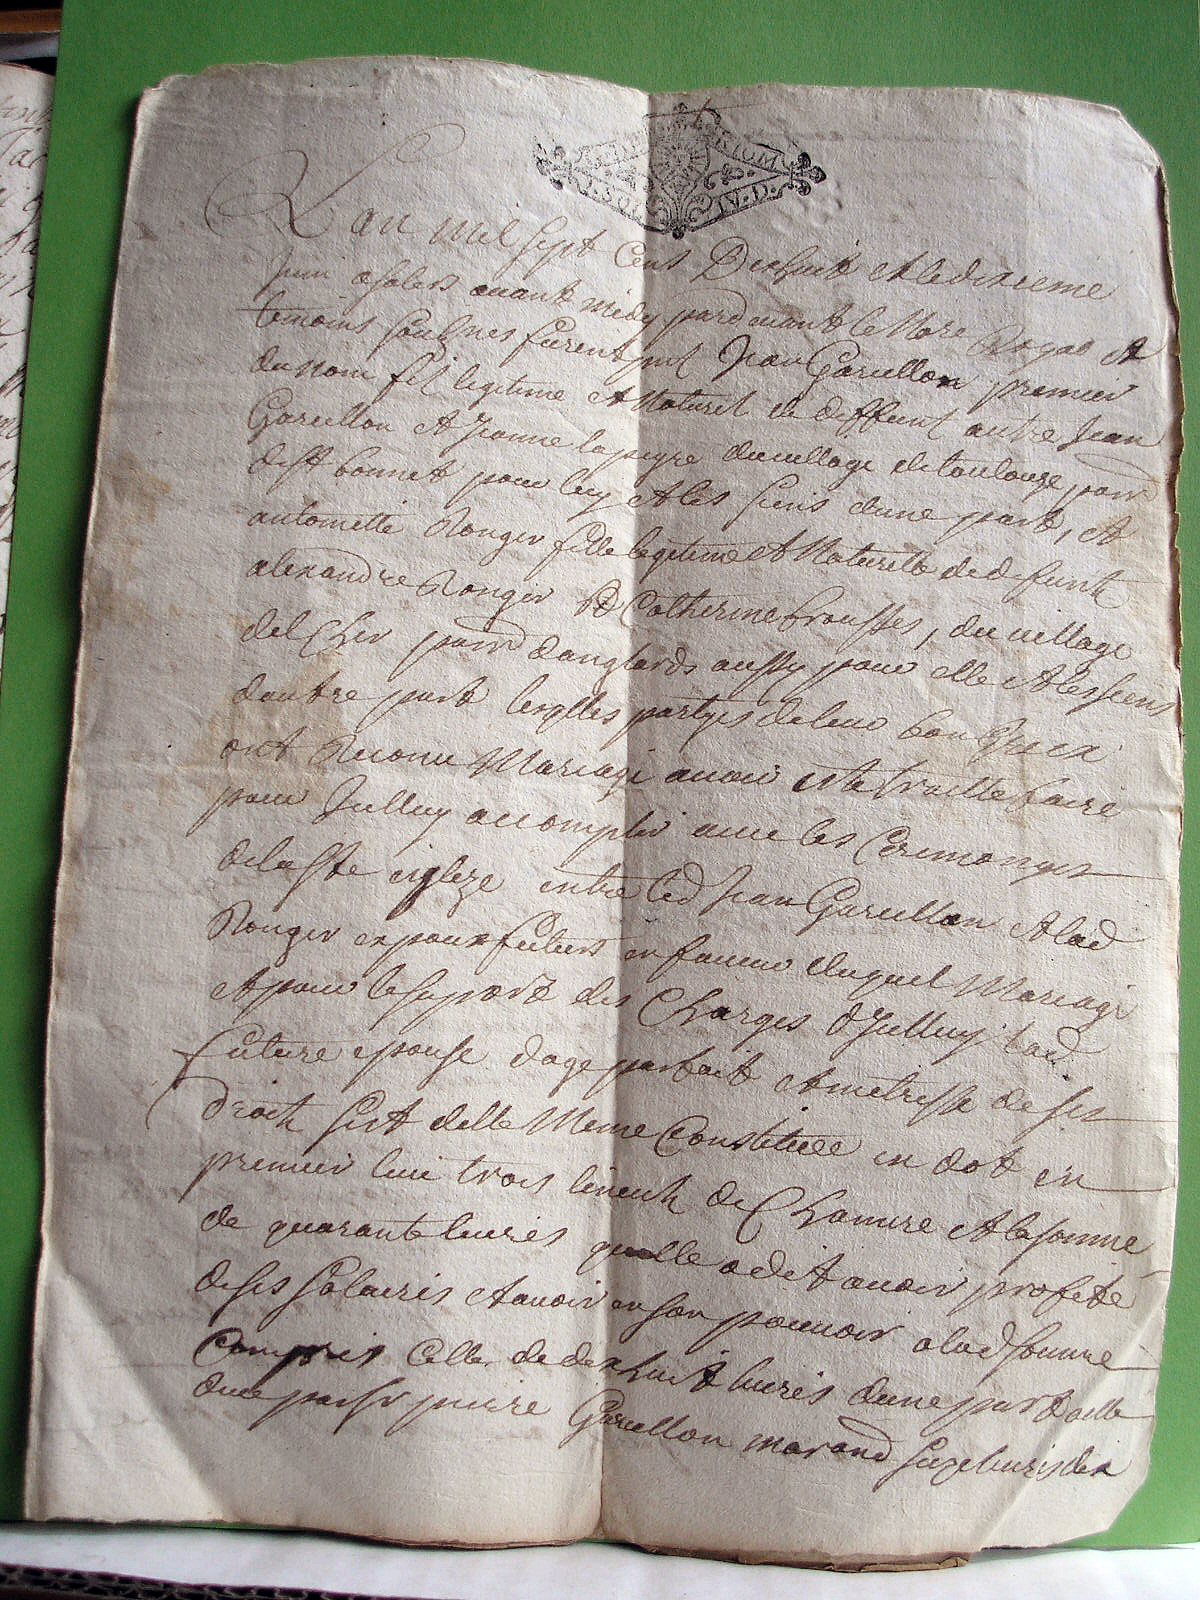 RIOM
SOLS IV.D.
L'an mil sept cens Dixhuit et le dixieme
Juin a salers avant midy pardevant le No.re Royal et
temoins soubsnes furent pnt Jean Garcellon premier
du nom fils legitime et Naturel de deffunt autre Jean
Garcellon et Jeanne lapeyre du village de toulouze parr
de st bonnet pour luy et les siens dune part, et
antoinette Rongier fille legitime et Naturelle de defunt
alexandre Rongier et Catherine brousses, du village
del Cher parr danglards aussy pour elle et les siens
dautre part lesqlles partyes de leur bon gre
ont Reconu Mariage avoir este traitte faire
pour Jcelluy accomplir avec les Ceremonyes
de la ste eglize entre led Jean Garcellon et lad
Rongier expoux futurs en faveur duquel Mariage
et pour le suport des Charges dJcelluy lad
future epouse dage parfait et metresse de ses
droits sest delle Meme Constituee en dot en
premier lieu trois linceuls de Chamvre et la somme
de quarante livres quelle a dit avoir profité
de ses salaires et avoir en son pouvoir a lad somme
Compris Celle de dixhuit livres dune part a elle
due par sr pierre Garcellon marand seze livres dix